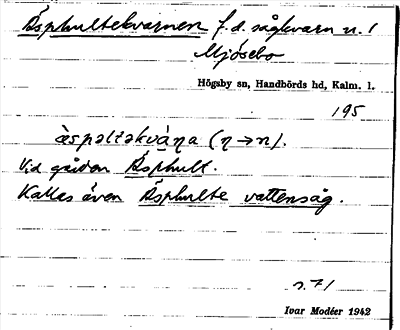 Äsphultekvarnen f.d. sågkvarn u. /
Mjösebo
Högsby sn, Handbörds hd, Kalm. l.
195
àspəltəkvá̱ɳa (ɳ→n).
Vid gården Äsphult.
Kallas även Äsphulte vattensåg.
s. 71
Ivar Modéer 1942